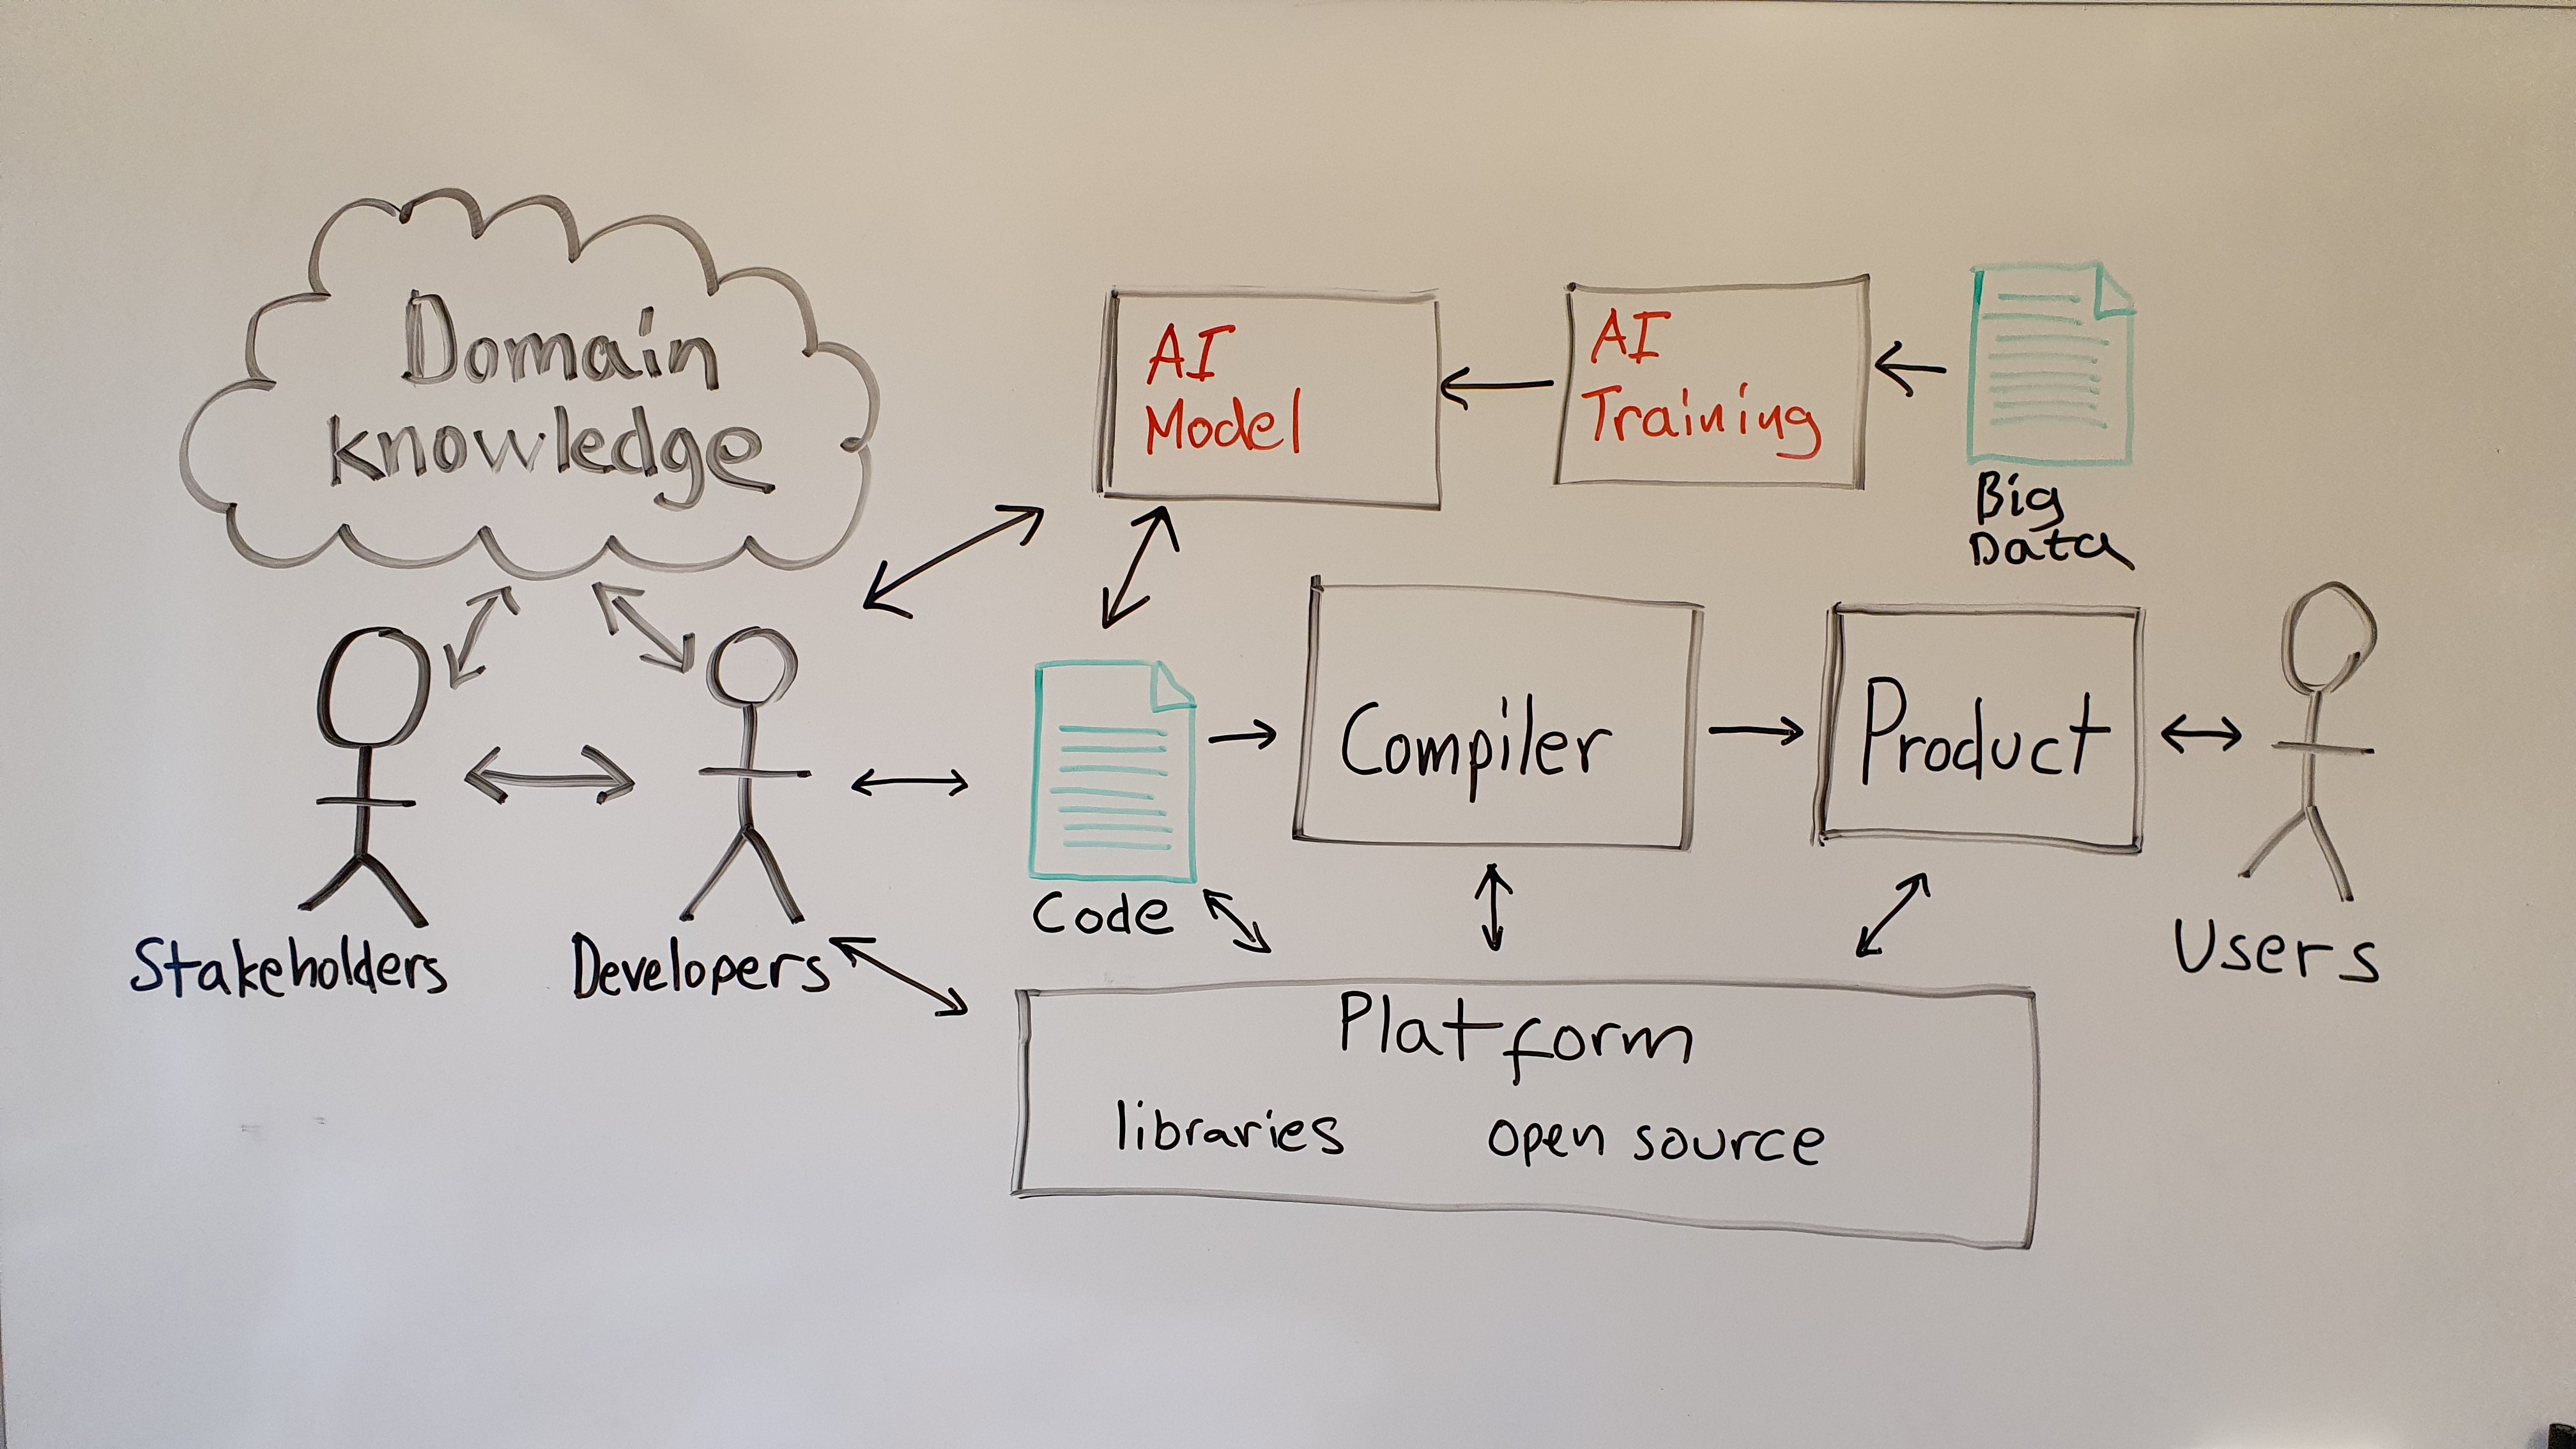 Domain
knowledge
AI
Model
AI
Training
Big
Data
Stakeholders
Developers
Code
Compiler
Product
Users
Platform
libraries open source